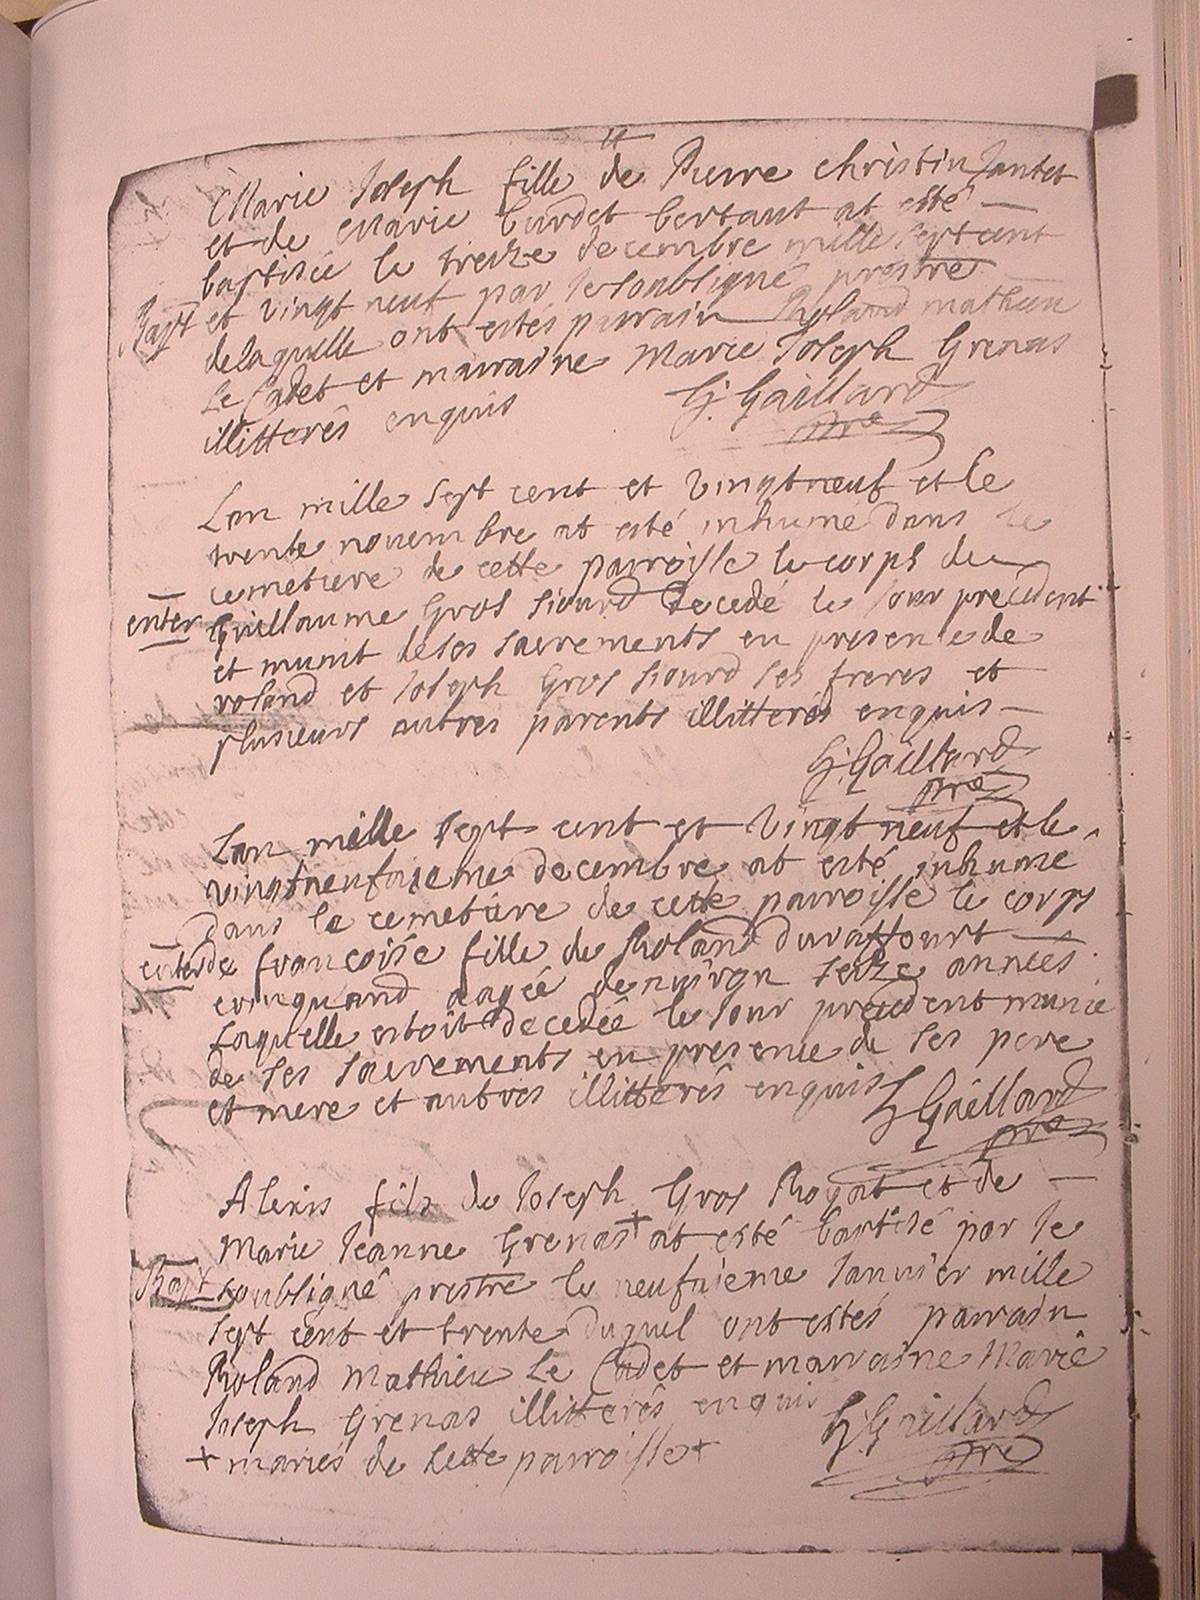 Marie Joseph fille de Pierre christin Jantet
et de Marie burdet bertaut at esté
baptisée le treize decembre mille sept cent
Bapt et vingt neuf par le soubsigné prestre
de laquelle ont estés parrain Roland mathieu
Le Cadet et marraine Marie Joseph Grenas
illitterés enquis G: Gaillard
pre
Lan mille sept cent et vingt neuf et le
trente novembre at esté inhumé dans le
cemetiere de cette parroisse le corps de
enter Guillaume Gros Siourd decedé le jour precedent
et munit de ses sacrements en presence de
roland et Joseph Gros siourd ses freres et
plusieurs autres parents illitterés enquis
G: Gaillard
pre
Lan mille sept cent et vingt neuf et le
vingtneufvieme decembre at esté inhume
dans le cemetiere de cette parroisse le corps
enter de francoise fille de Roland duraffourt
aagée denviron seize années
Laquelle estoit decedée le jour precedent munie
de ses sacrements en presence de ses pere
et mere et autres illitterés enquis G Gaillard
pre
Alexis fils de Joseph Gros Royat et de
Marie Jeanne Grenas + at esté baptisé par le
Bapt soubsigné prestre le neufvieme Janvier mille
sept cent et trente duquel ont estés parrain
Roland Mathieu Le Cadet et marraine Marie
Joseph Grenas illitterés enquis G: Gaillard
+ mariés de cette parroisse + pre